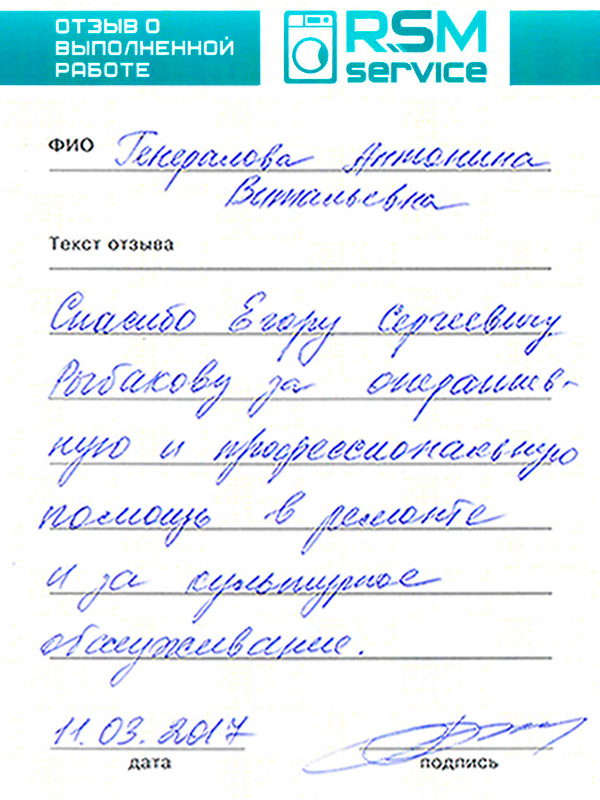 ОТЗЫВ О
ВЫПОЛНЕННОЙ
РАБОТЕ
RSM
service
ФИО Генералова Антонина
Витальевна
Текст отзыва
Спасибо Егору Сергеевичу
Рыбакову за оператив-
ную и профессиональную
помощь в ремонте
и за культурное
обслуживание.
11.03.2017
дата
подпись